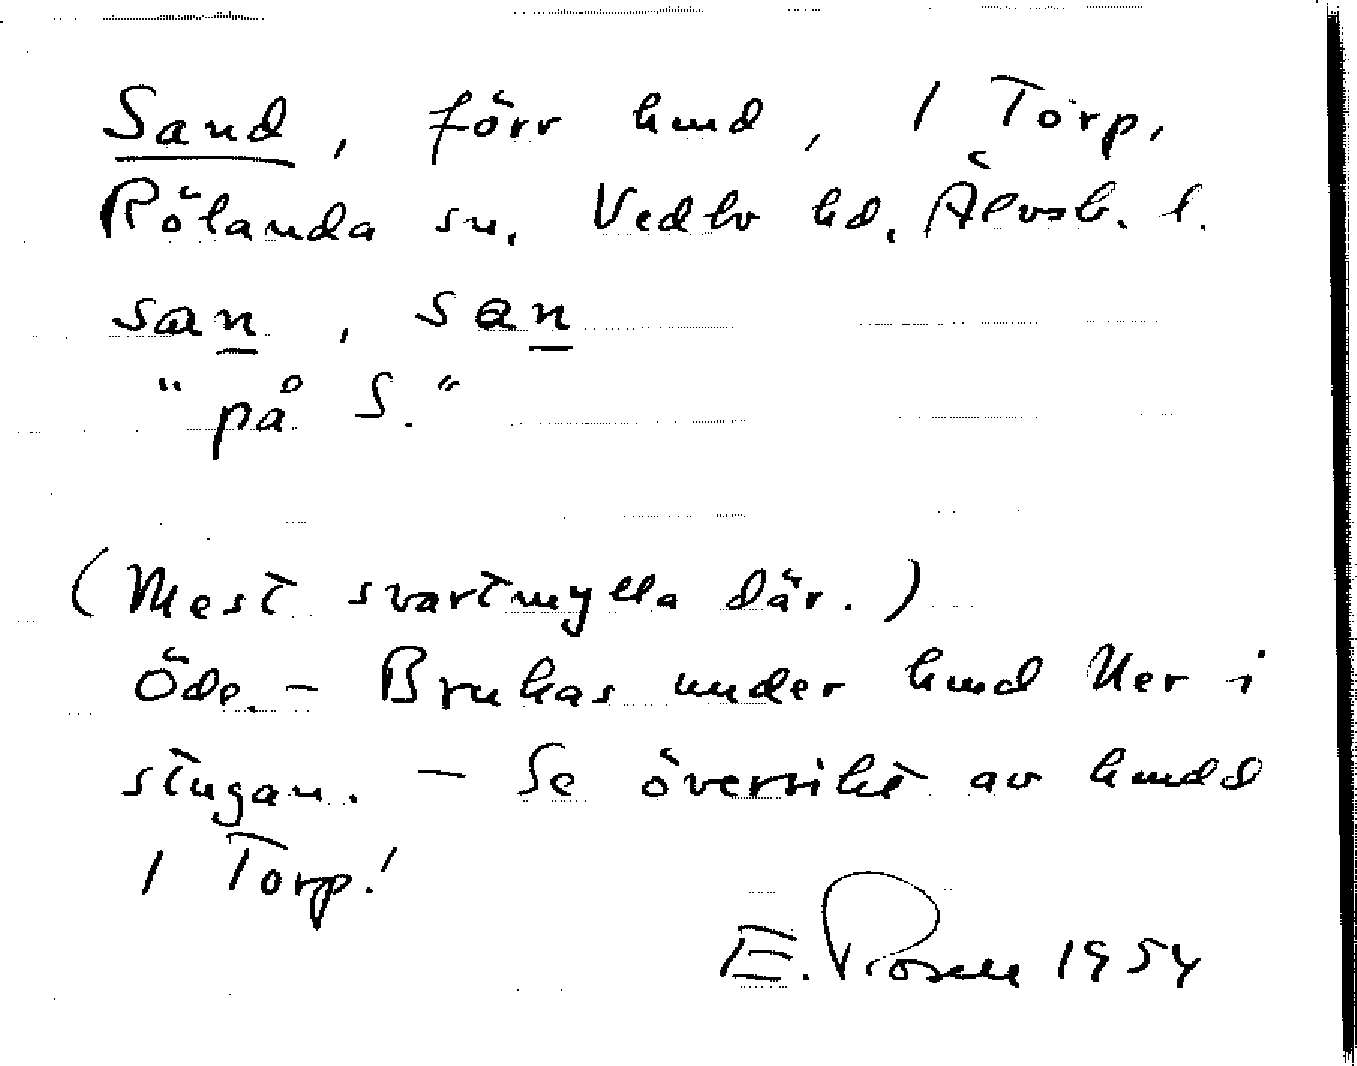 Sand, förr hmd, 1 Torp,
Rölanda sn, Vedbo hd, Älvsb. l.
san, san
"på S."
(Mest svartmylla där.)
Öde. – Brukas under hmd Ner i
stugan. – Se översikt av hmdd
1 Torp!
E. Rosell 1954